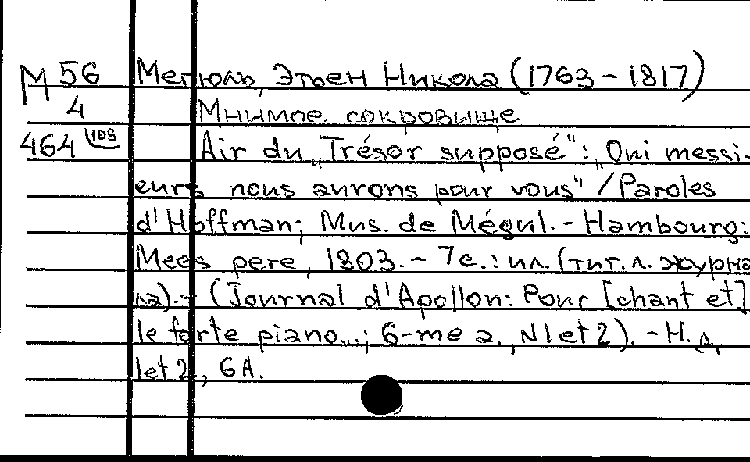 М 56 Мегюль, Этьен Никола (1763-1817)
4 Мнимое сокровище
464 Air du „Trésor supposé": „Oui messi-
eurs nous aurons pour vous" / Paroles
d'Hoffman; Mus. de Mégul. - Hambourg:
Mees pere, 1803. - 7с.: ил. (тит. л. журна
ла). - (Journal d'Apollon: Pour [chant et]
le forte piano...; 6-me a., N1et2). - Н. д.
1et2, 6A.